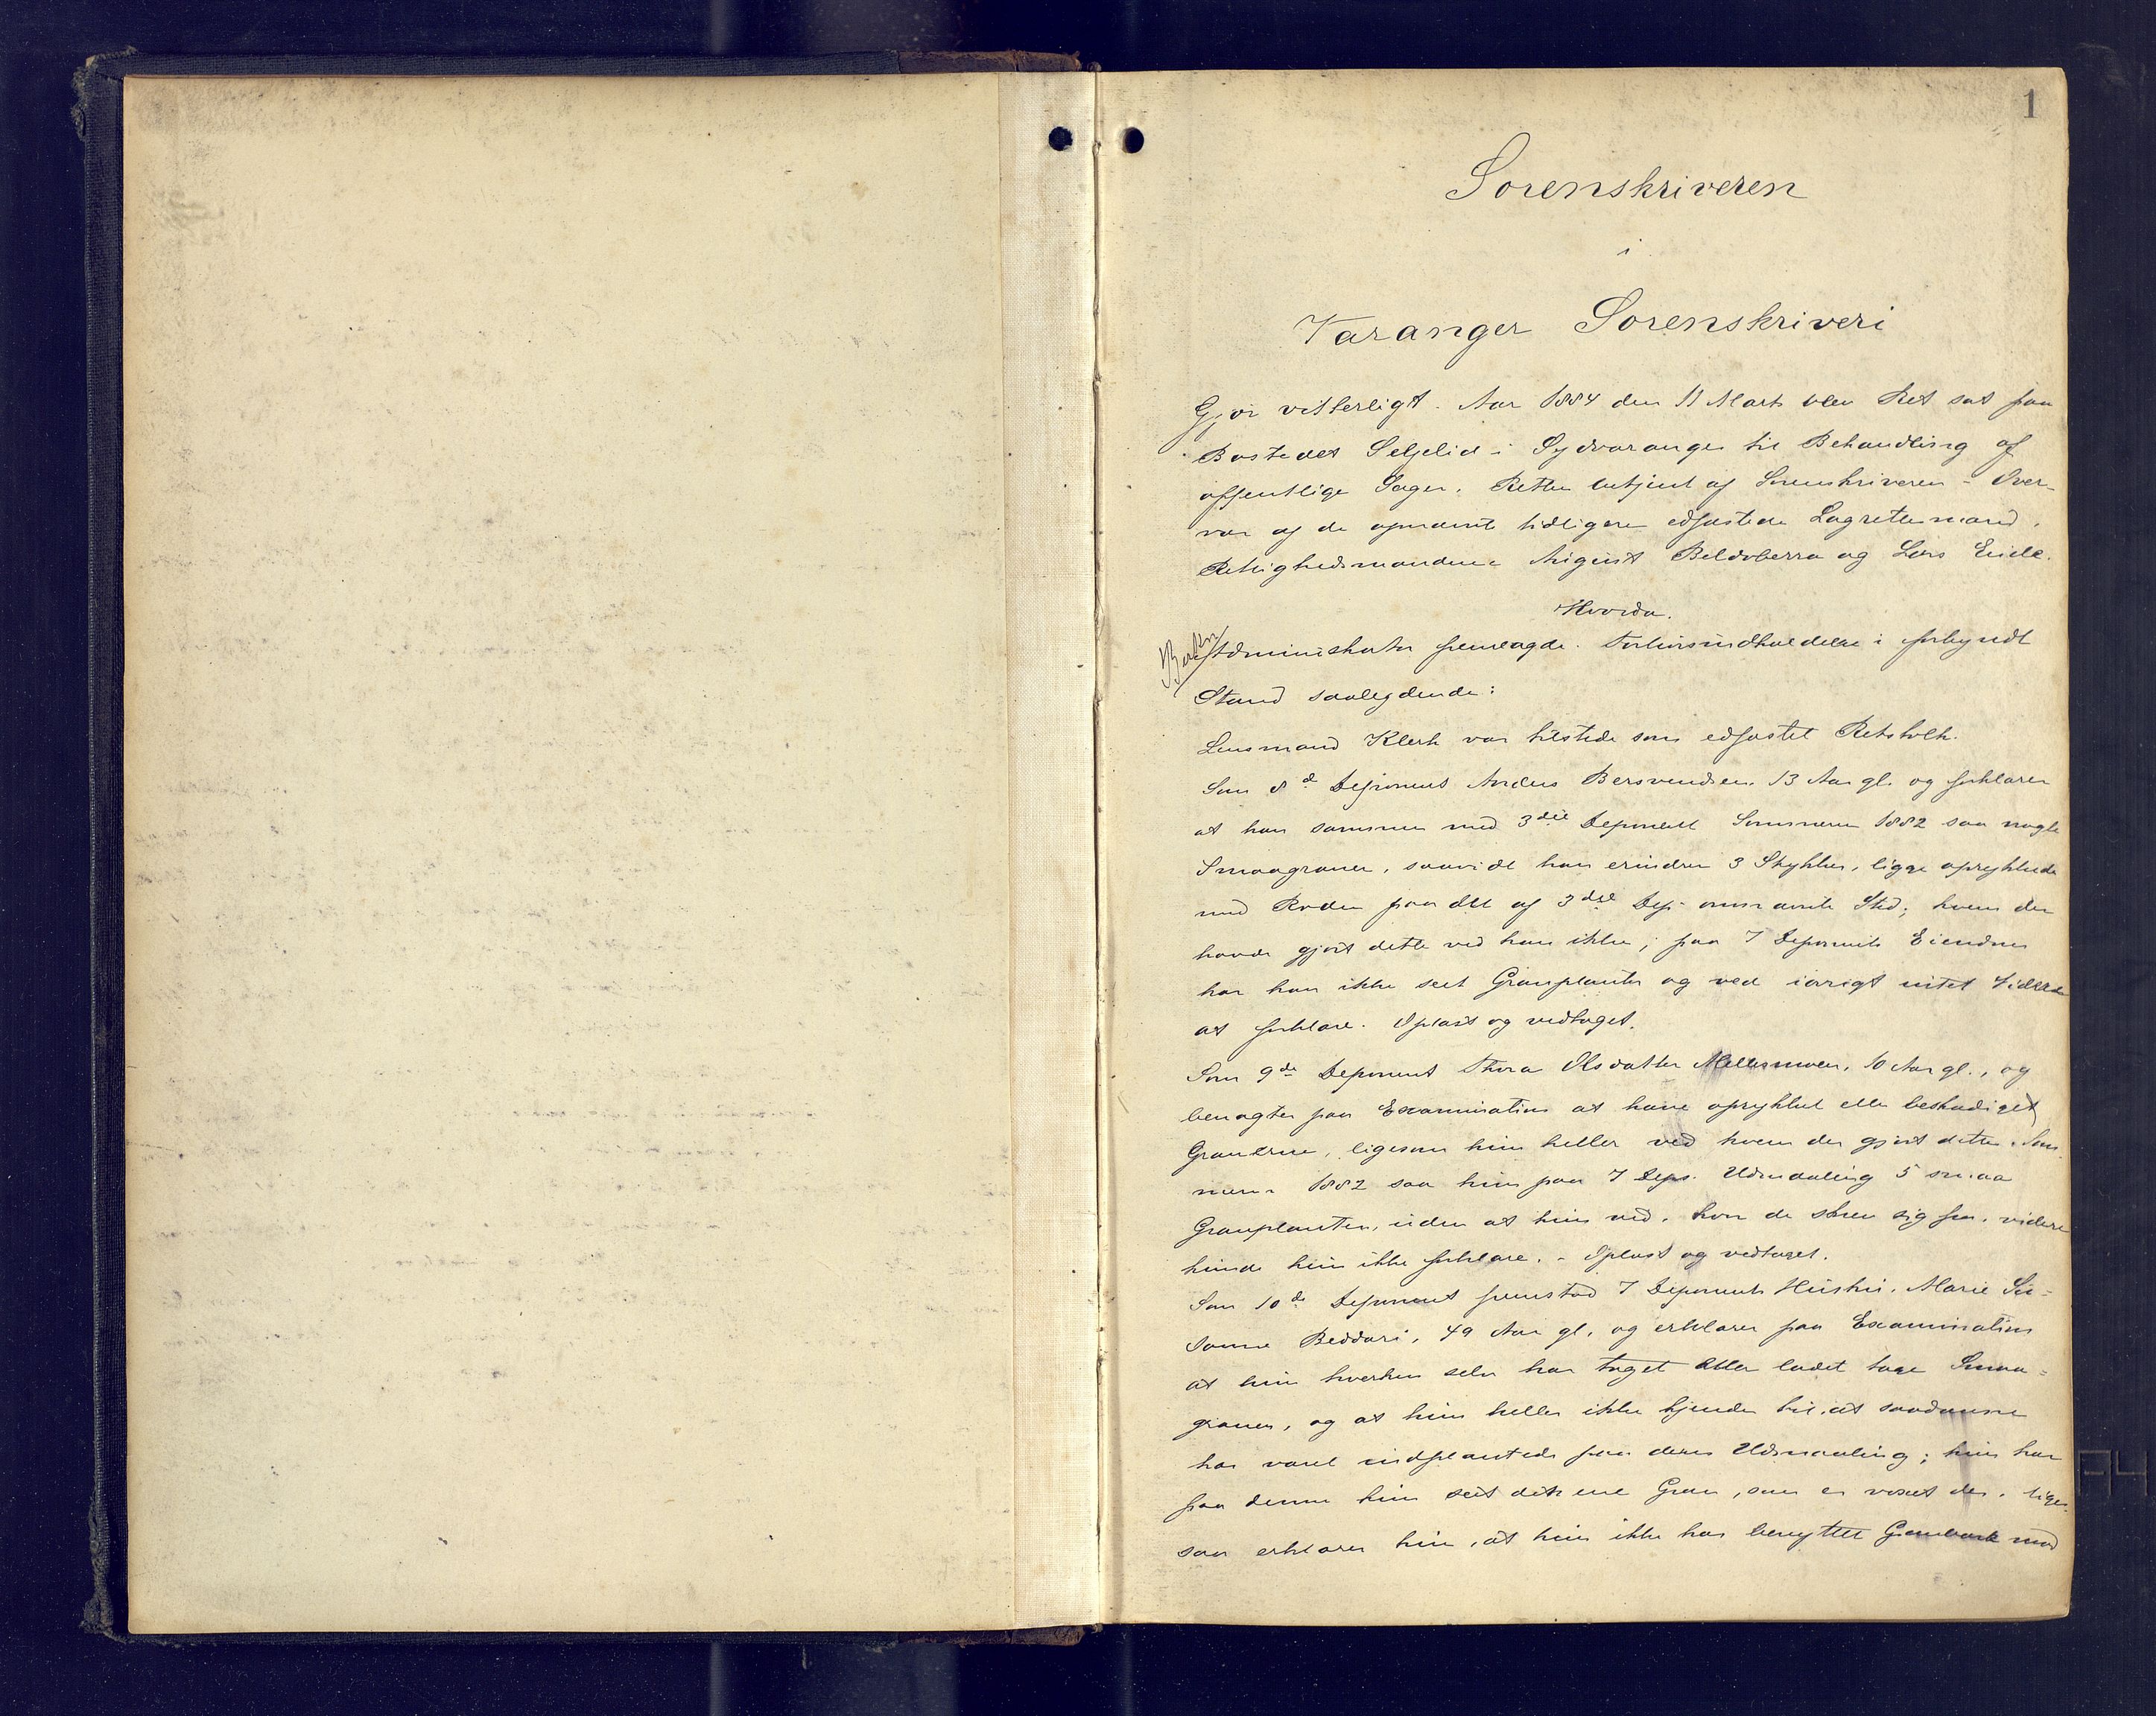 1
Sorenskriveren
i
Varanger Sorenskriveri
Gjør vitterligt. Aar 1884 den 11 Marts blev Ret sat paa
Bostedet Seljelid i Sydvaranger til Behandling af
offentlige Sager. Retten betjent af Sorenskriveren i Over-
vær af de opnævnte tidligere edfæstede Lagrettemænd.
Rettighedsmændene August Beldoberra og Lars Eide.
Hvorda.
Administrator fremlagde Forhørsindkaldelse i forkyndt
Stand saalydende:
Lensmand Klerk var tilstede som edfæstet Retsholk.
Som 8de Deponent Anders Bersvendsen 13 Aar gl. og forklarer
at han sammen med 3die Deponent Sommeren 1882 saa nogle
Smaagraner, saavidt han erindrer 3 Stykker, ligge oprykkede
med Roden paa det af 3die Dep. omnævnte Sted; hvem der
havde gjort dette ved han ikke; paa 7 Deponents Eiendom
har han ikke seet Granplanter og ved iøvrigt intet
at forklare. Oplæst og vedtaget.
Som 9de Deponent Thora Olsdatter Mellesmoen, 10 Aar gl., og
benægter paa Examination at have oprykket eller beskadiget
Granerne, ligesom hun heller ved hvem der gjort dette. Som-
meren 1882 saa hun paa 7 Deps. Udmaaling 5 smaa
Granplanter, uden at hun ved, hvor de skrev sig fra. videre
kunde hun ikke forklare. - Oplæst og vedtaget.
Som 10de Deponent fremstod 7 Deponents Hustru, Marie Su-
sanne Beddari, 49 Aar gl. og erklærer paa Examination
at hun hverken selv har taget eller ladet tage Smaa-
graner, og at hun heller ikke kjender til, at saadanne
har været indplantede paa deres Udmaaling; hun har
paa denne kun seet den ene Gran, som er voxet der. lige-
saa erklærer hun, at hun ikke har benyttet Granbark med